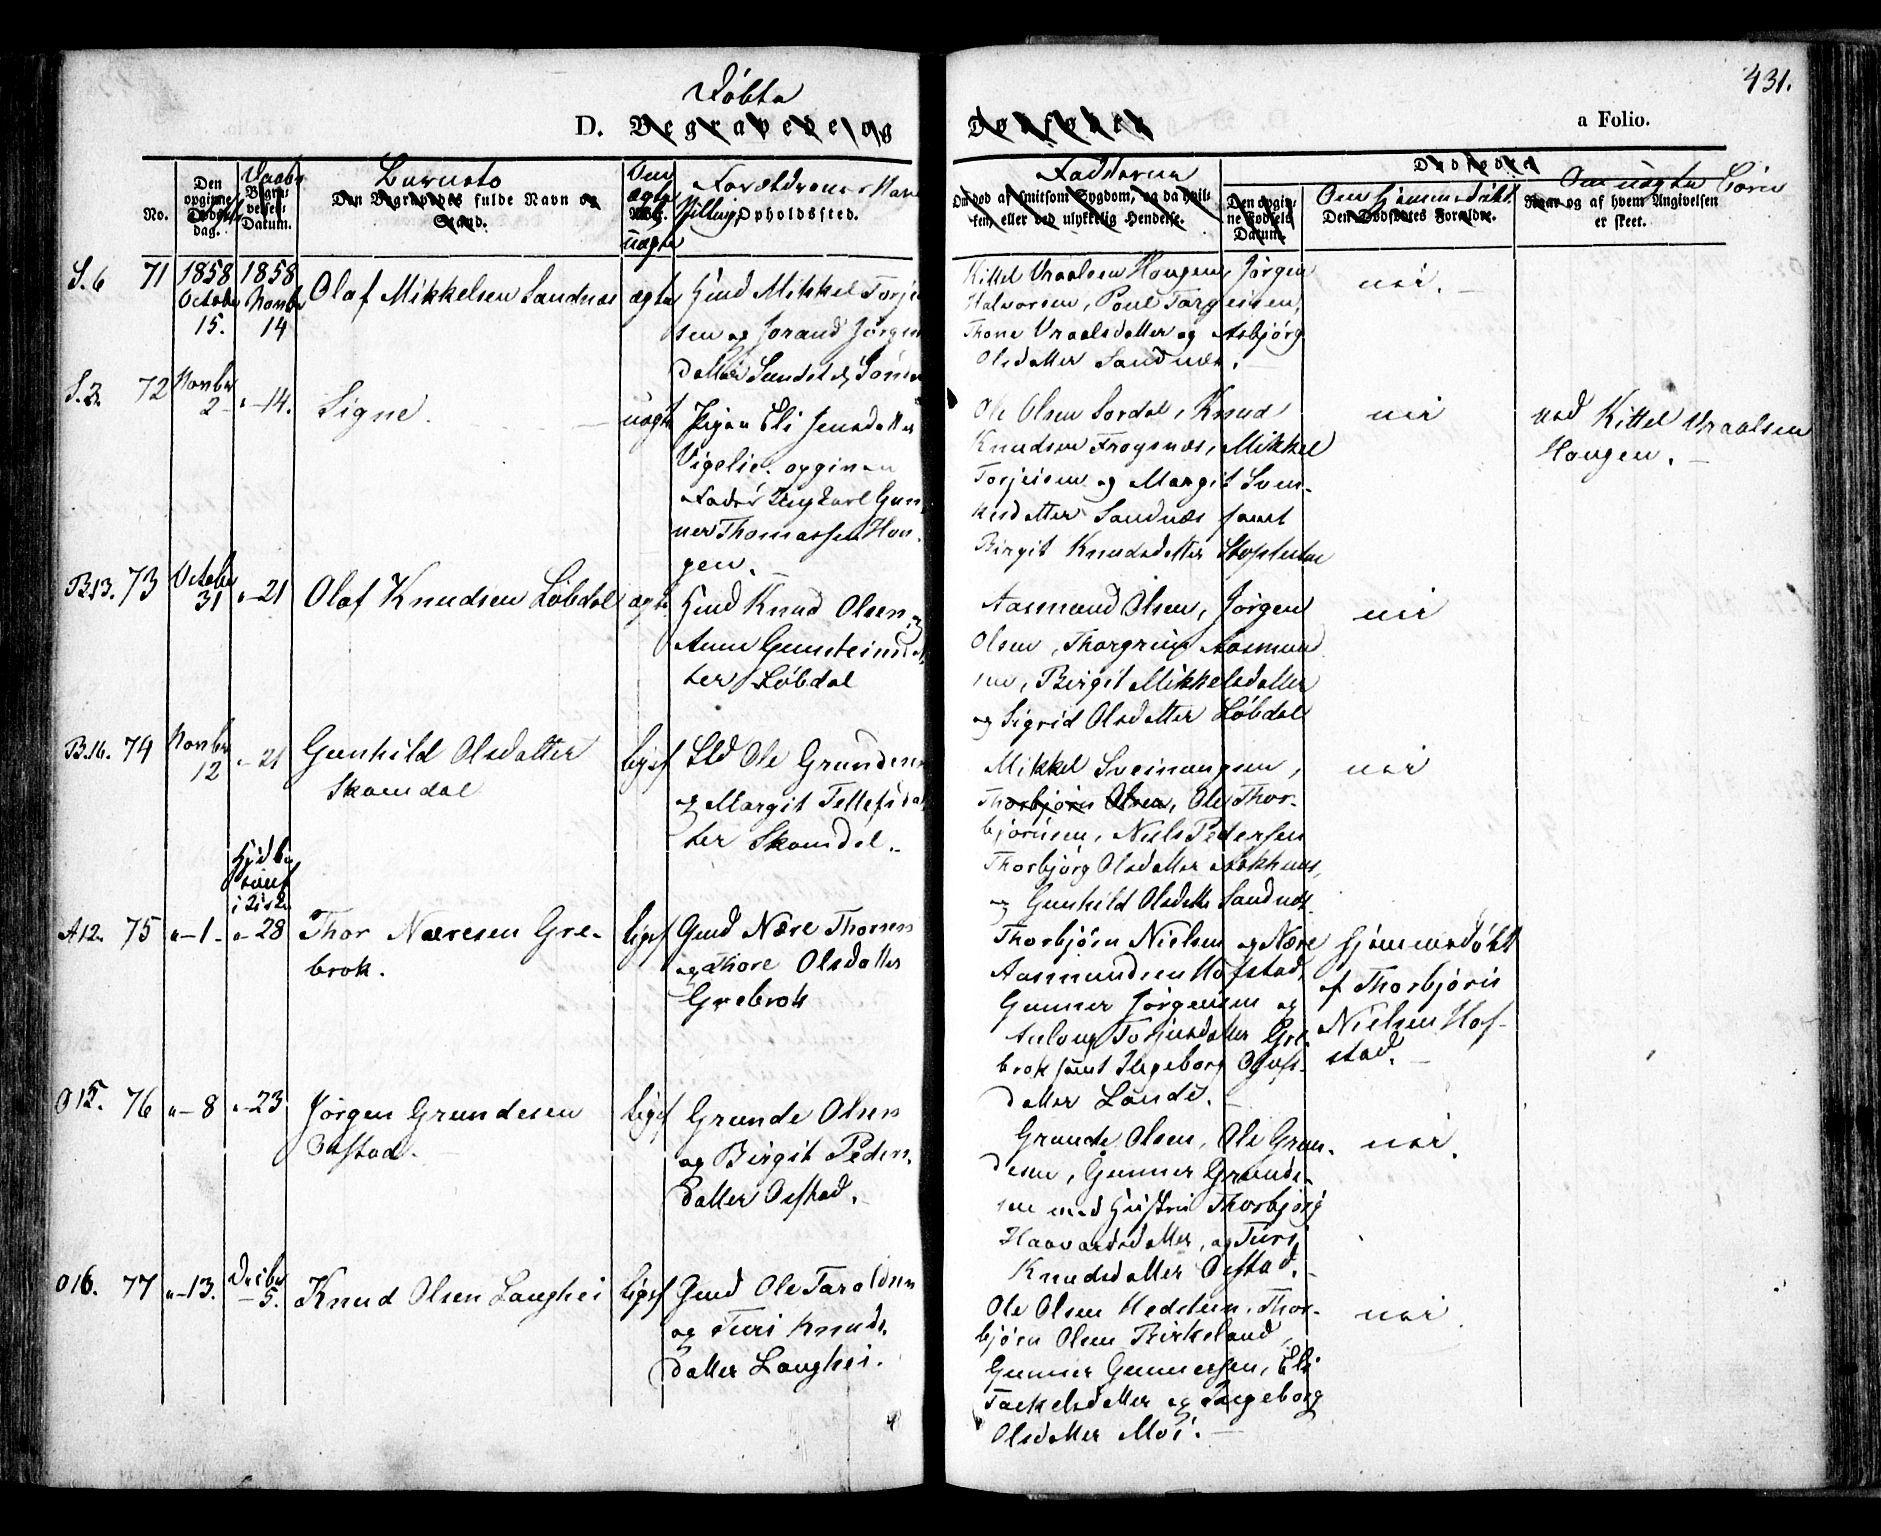 431.
Døbte
D. Begravede og Dødfødte
a Folio.
No.
Den opgivne Dødsdag.
Daabs
Begravelses Datum.
Barnets
Den Begravedes fulde Navn og Stand.
Om ægte
uægte
Forældrenes Navn
Stilling, Opholdssted.
Fadderne
Om død af smitsom Sygdom, og da hvilken, eller ved ulykkelig Hendelse.
Den opgivne Fødsels Datum.
Dødfødte
Om hjemmedøbt
Den Dødfødtes Forældre.
Om uægte Børn
Naar og af hvem Angivelsen er skeet.
S. 6 71 1858 October 15. 1858 Novbr 14
Olaf Mikkelsen Sandnæs
ægte
Gmd Mikkel Torjei
sen og Jorand Jørgens
datter Sandnæs
Kittel Vraalsen Haugen, Jørgen
Halvorsen, Poul Targeisen,
Thone Vraalsdatter og Asbjørg
Olsdatter Sandnæs.
nei.
S. 3. 72 Novbr 2 - 14.
Signe.
uægte
Pigen Eli Jensdatter
Vigelie. opgiven
Fader Ungkarl Gun-
ner Thomassen Hau-
gen.
Ole Olsen Sordal, Knud
Knudsen Frøysnæs, Mikkel
Torjeisen og Margit Sven-
kesdatter Sandnæs samt
Birgit Knudsdatter
nei
ved Kittel Vraalsen
Haugen.
B.13. 73 October 31 " - 21
Olaf Knudsen Løbdal
ægte
Gmd Knud Olsen og
Anne Gunsteinsdat-
ter Løbdal
Aasmund Olsen, Jørgen
Olsen, Thorgrim Aasmund
sen, Birgit Mikkelsdatter
og Sigrid Olsdatter Løbdal
nei
B.16. 74 Novbr 12 " - 21
Gunhild Olsdatter
Skomedal
ligesf
Ole Grundesen
og Margit Tellefsdat
ter Skomedal.
Mikkel Sveinungsen,
Thorbjørn Olsen, Ole Thor-
bjørnsen, Niels Pedersen
Thorbjørg Olsdatter
og Gunhild Olsdatter Sandnæs.
nei
A12. 75 " - 1. " - 28
Thor Næresen Gre-
brok.
ligesf
Gmd Nære Thorsen
og Thore Olsdatter
Grebrok
Thorbjørn Nielsen og Nære
Aasmundsen Hofstad,
Gunner Jørgensen og
Aaloug Torjusdatter Gre
brok samt Ingeborg Olufs-
datter Lande.
hjemmedøbt
af Thorbjørn
Nielsen Hof-
stad.
O15. 76 " - 8 " - 23
Jørgen Grundesen
Ofstad.
ligesf
Grunde Olsen
og Birgit Peders
datter Ofstad.
Grunde Olsen, Ole Grun-
desen, Gunner Grunde-
sen med Hustru Thorbjørg
Haavardsdatter, og Turi
Knudsdatter Ofstad.
nei.
O16. 77 " - 13. Decbr 5.
Knud Olsen Langhei
ligesf
Gmd Ole Taraldsen
og Turi Knuds
datter Langhei.
Ole Olsen Hedstein, Thor-
bjørn Olsen Birkeland,
Gunner Gunnersen, Eli
Taekelsdatter og Ingeborg
Olsdatter Moi.
nei